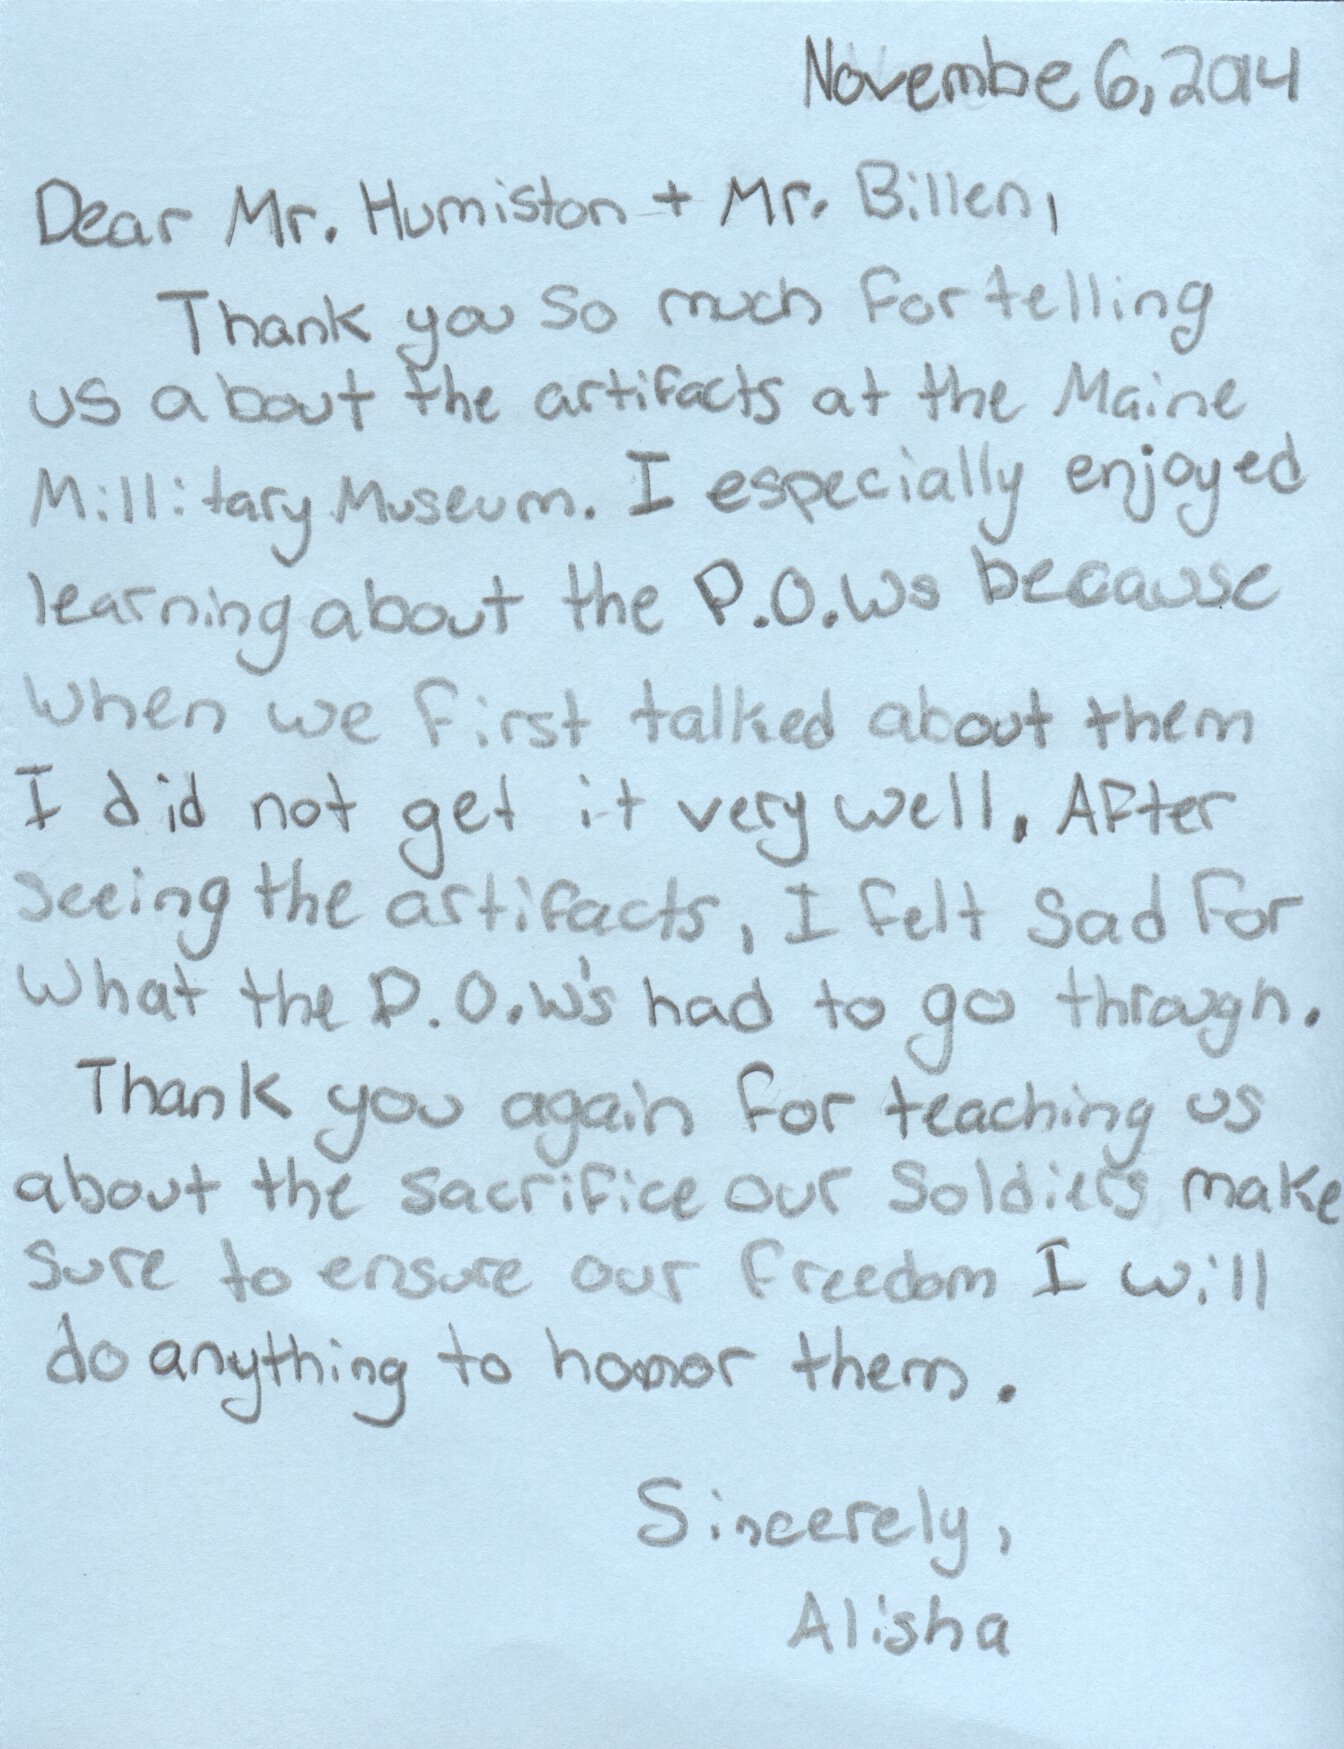 Novembe 6, 2014
Dear Mr. Humiston + Mr. Billen,
Thank you so much for telling
us about the artifacts at the Maine
Millitary Museum. I especially enjoyed
learning about the P.O.Ws because
when we first talked about them
I did not get it very well. After
seeing the artifacts, I felt sad for
what the P.O.W's had to go through.
Thank you again for teaching us
about the sacrifice our soldiers make
sure to ensure our freedom I will
do anything to honor them.
Sincerely,
Alisha